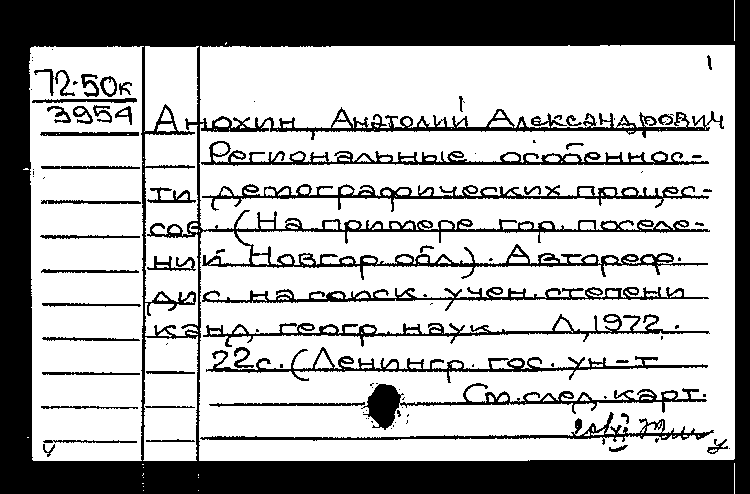 1
72-50к
3954
Анохин, Анатолий Александрович
Региональные особеннос-
ти демографических процес-
сов. (На примере гор. поселе-
ний Новгор. обл.). Автореф.
дис. на соиск. учен. степени
канд. геогр. наук. Л., 1972.
22с. (Ленингр. гос. ун-т
См. след. карт.